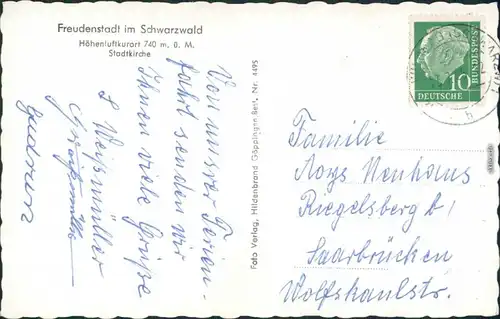 Freudenstadt im Schwarzwald
Höhenluftkurort 740 m. ü. M.
Stadtkirche
Von unsrer Ferien-
fahrt senden wir
Ihnen viele Grüße
L Weißmüller
Gudrun
Foto Verlag, Hildenbrand Göppingen Best. Nr. 4495
10
DEUTSCHE
BUNDESPOST
Familie
Aloys Neuhaus
Riegelsberg b/
Saarbrücken
Wolfskaulstr.